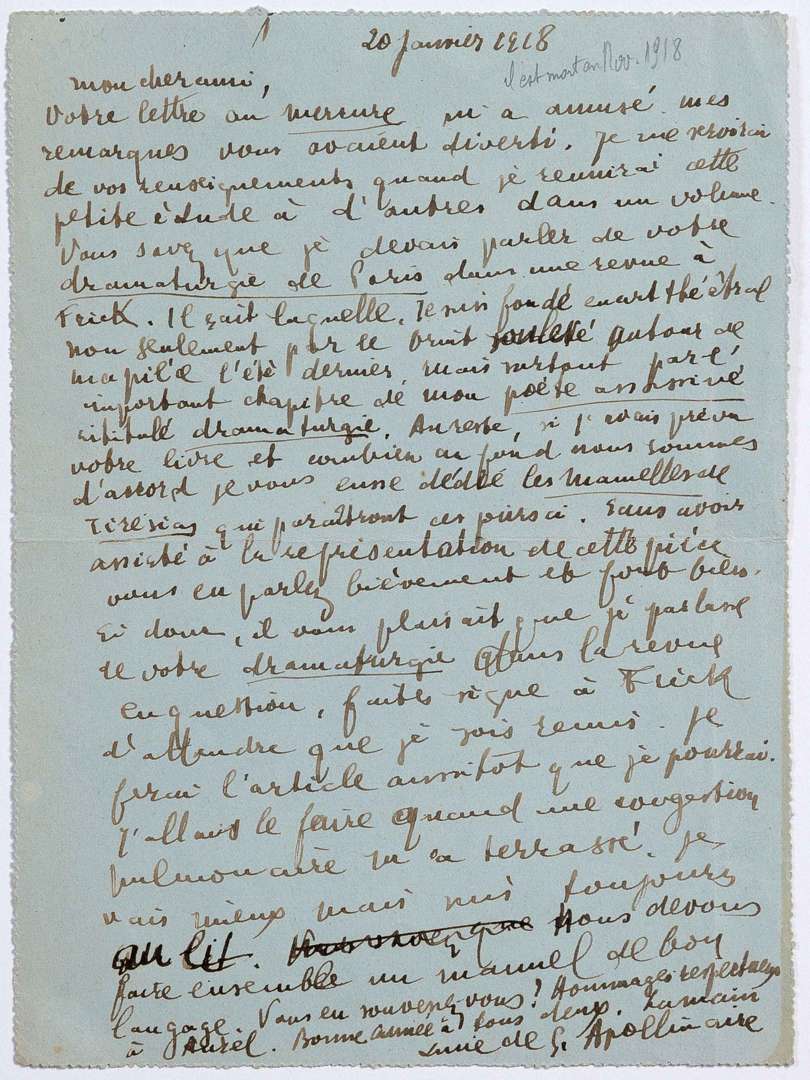 20 Janvier 1918
il est mort en Nov. 1918
mon cher ami,
Votre lettre au Mercure m'a amusé. mes
remarques vous avaient diverti. Je me servirai
de vos renseignements quand je reunirai cette
petite étude à d'autres dans un volume.
Vous savez que je devais parler de votre
dramaturgie de Paris dans une revue à
Frick. Il sait laquelle. Je suis fondé en art théâtral
non seulement par le bruit soulevé autour de
ma pièce l'été dernier, mais surtout par l'
important chapitre de mon poète assassiné
intitulé dramaturgie. Au reste, si j'avais prévu
votre livre et combien au fond nous sommes
d'accord je vous eusse dédié les mamelles de
Tirésias qui paraîtront ces jours ci. Sans avoir
assisté à la représentation de cette pièce
vous en parlez brièvement et fort bien.
Si donc, il vous plaisait que je parlasse
de votre dramaturgie dans la revue
en question, faites signe à Frick
d'attendre que je sois remis. Je
ferai l'article aussitot que je pourrai.
J'allais le faire quand une congestion
pulmonaire m'a terrassé. Je
vais mieux mais suis toujours
au lit. Nous devons
faire ensemble un manuel de bon
langage. Vous en souvenez vous? Hommages respectueux
à Aurel. Bonne année à tous deux. La main
amie de G. Apollinaire